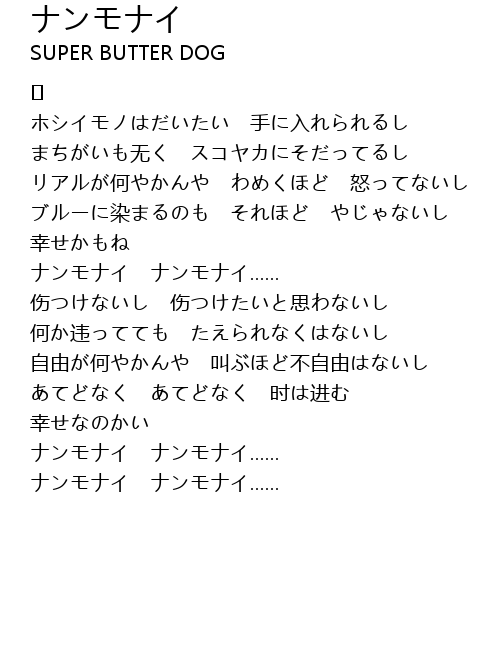 ナンモナイ
SUPER BUTTER DOG
[]
ホシイモノはだいたい　手に入れられるし
まちがいも无く　スコヤカにそだってるし
リアルが何やかんや　わめくほど　怒ってないし
ブルーに染まるのも　それほど　やじゃないし
幸せかもね
ナンモナイ　ナンモナイ......
伤つけないし　伤つけたいと思わないし
何か违ってても　たえられなくはないし
自由が何やかんや　叫ぶほど不自由はないし
あてどなく　あてどなく　时は进む
幸せなのかい
ナンモナイ　ナンモナイ......
ナンモナイ　ナンモナイ......